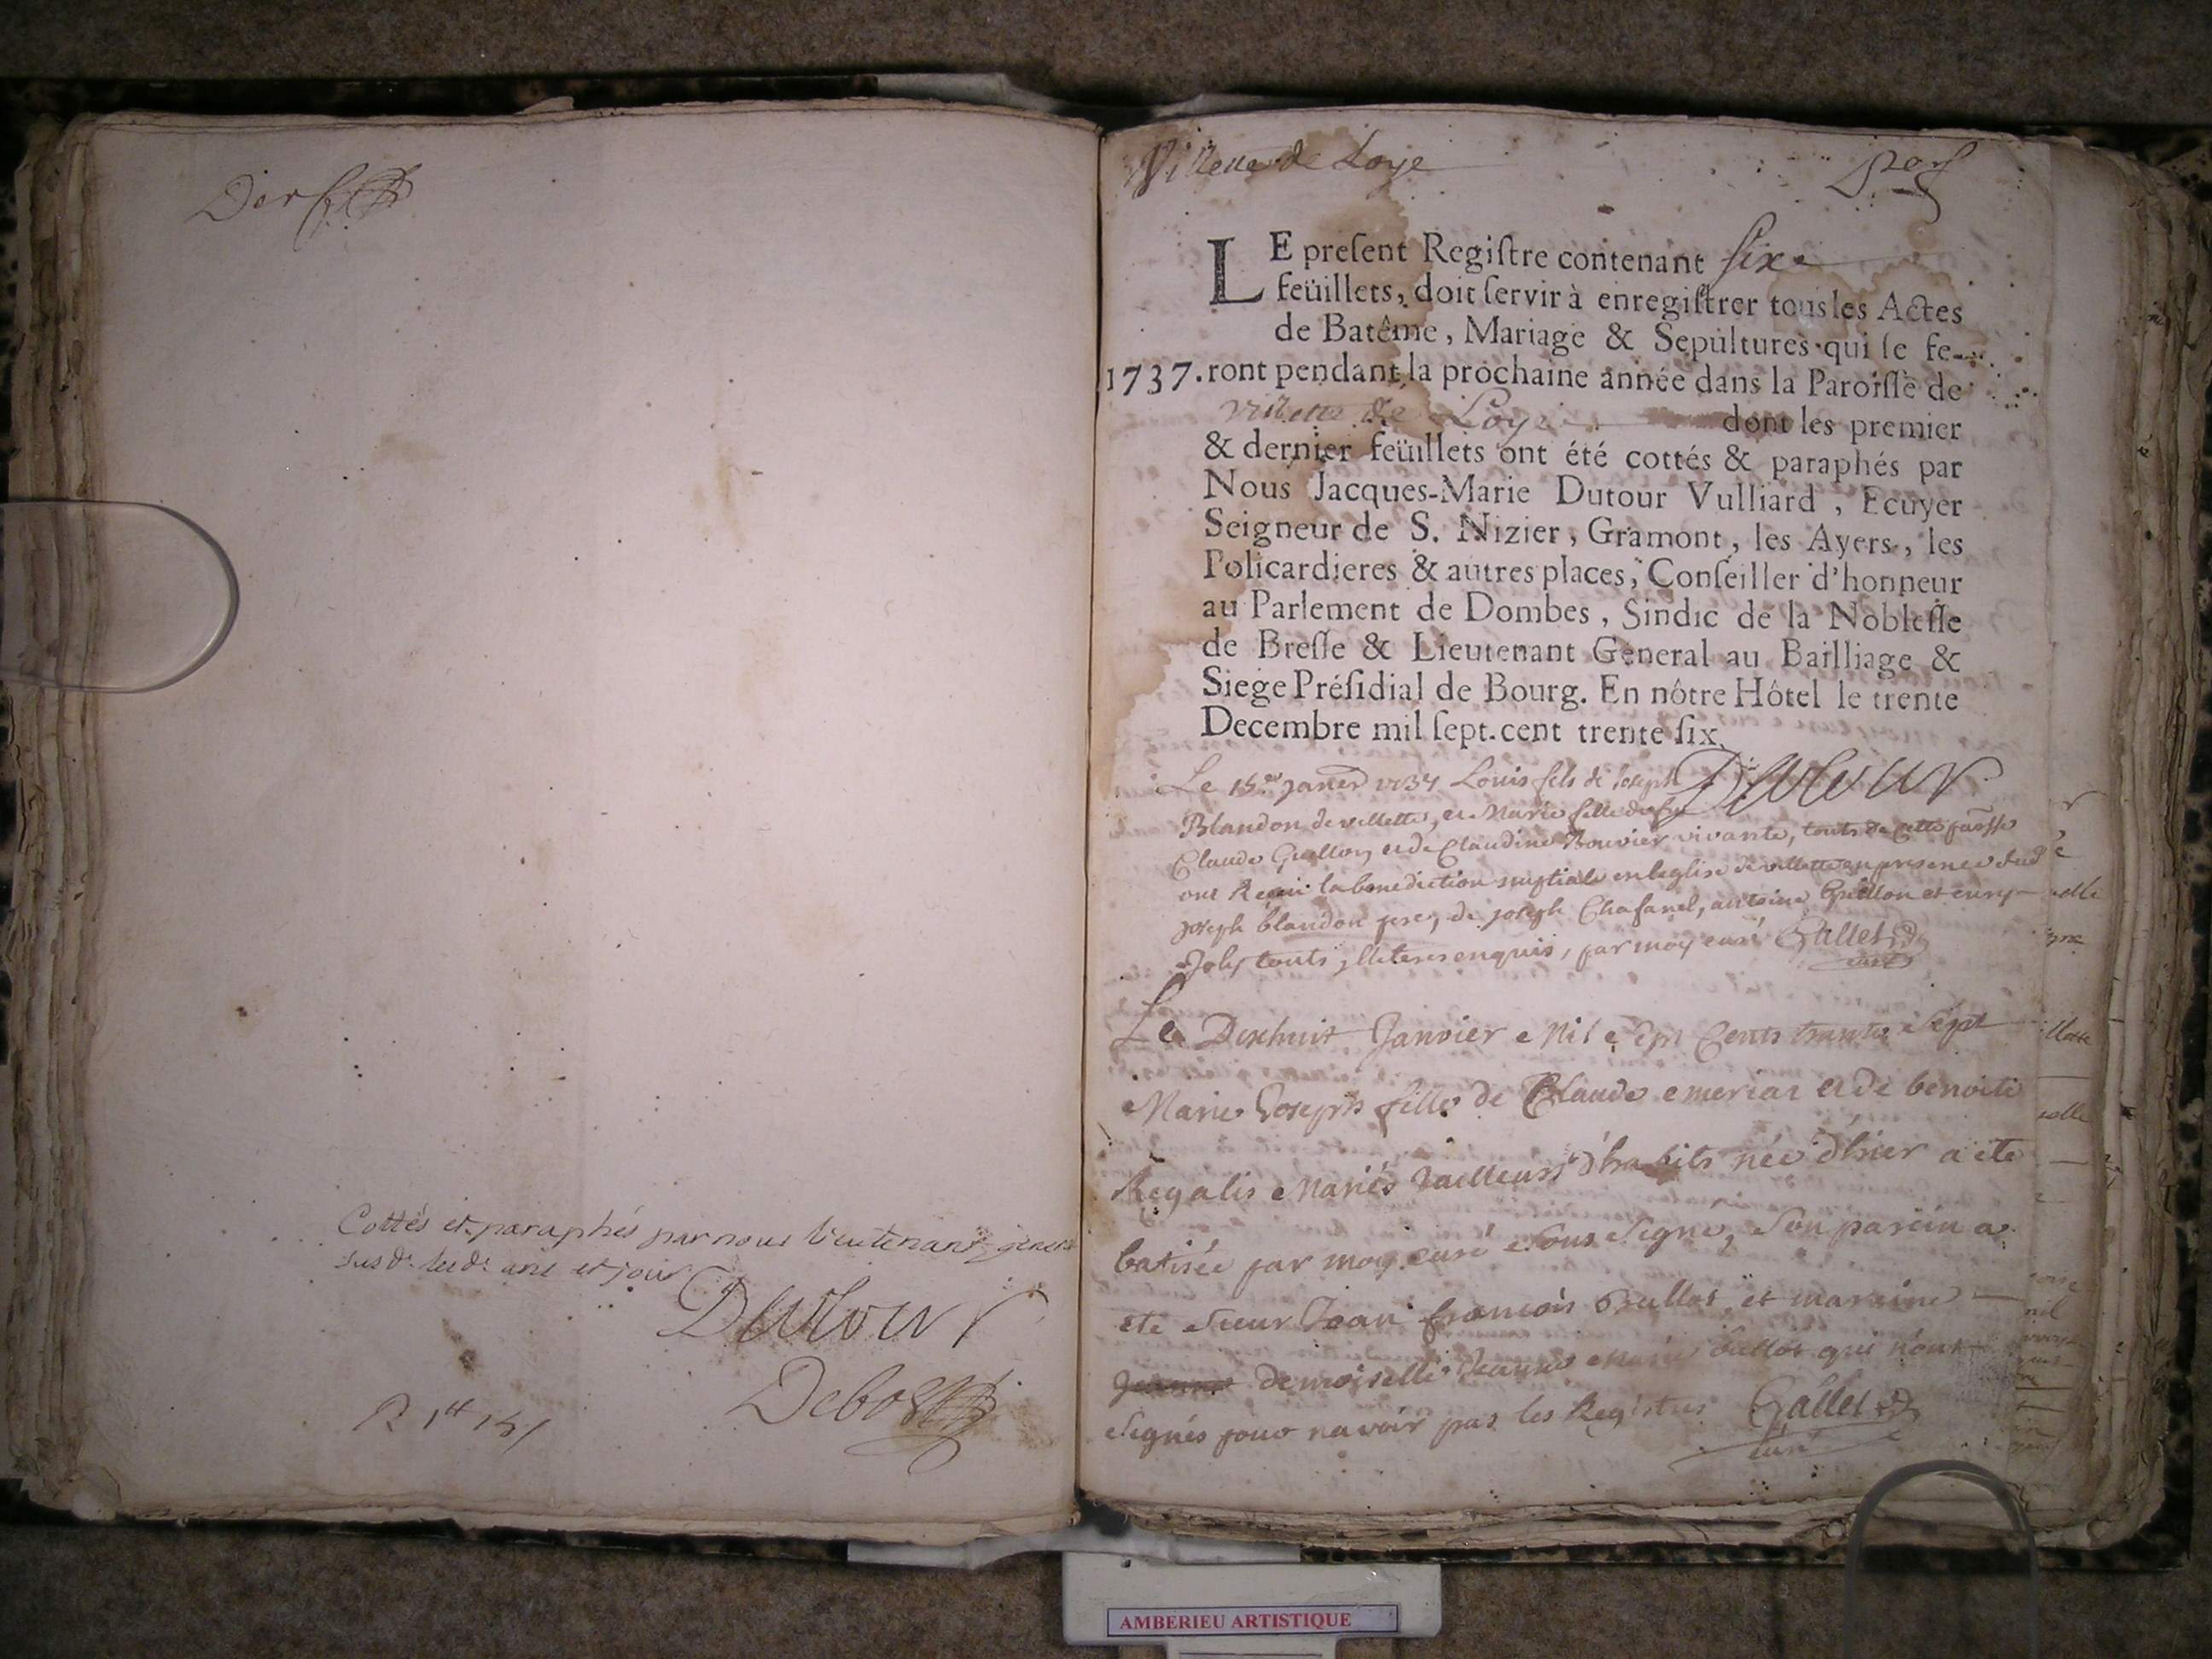 Der
Cottés et paraphés par nous lieutenant gener
susd. lesd. ans et jour
Dutour
Debost
Villette de Loye
Per
LE preſent Regiſtre contenant six
feüillets, doit ſervir à enregiſtrer tous les Actes
de Batême, Mariage & Sepultures qui ſe fe-
1737. ront pendant la prochaine année dans la Paroiſſe de
villette de Loye dont les premier
& dernier feüillets ont été cottés & paraphés par
Nous Jacques-Marie Dutour Vulliard, Ecuyer
Seigneur de S. Nizier, Gramont, les Ayers, les
Policardieres & autres places, Conſeiller d'honneur
au Parlement de Dombes, Sindic de la Nobleſſe
de Breſſe & Lieutenant General au Bailliage &
Siege Préſidial de Bourg. En nôtre Hôtel le trente
Decembre mil ſept-cent trente ſix.
Dutour
Le 15 janer 1737 Louis fils de joseph
Blandon de villette, et Marie fille de feu
Claude Guillon, et de Claudine Bouvier vivante, touts de cette
ont Receu la benediction nuptiale en leglise de villette en presence dud
joseph blandon pere, de joseph Chafanel, antoine Guillon et
Joly touts jlliteres enquis, par moy curé Gallet
curé
Le Dixhuit Janvier Mil Sept Cents trante Sept
Marie Joseph fille de Claude emeriat et de benoite
Regalis Mariés Tailleurs d'habits née d'hier a ete
batisée par moy curé Sous Signé, Son parein a
ete Sieur Jean francois Bullot et mareine
demoiselle Jeanne Marie Bullot qui n'ont
Signés pour navoir pas les Registres Gallet
curé
AMBERIEU ARTISTIQUE